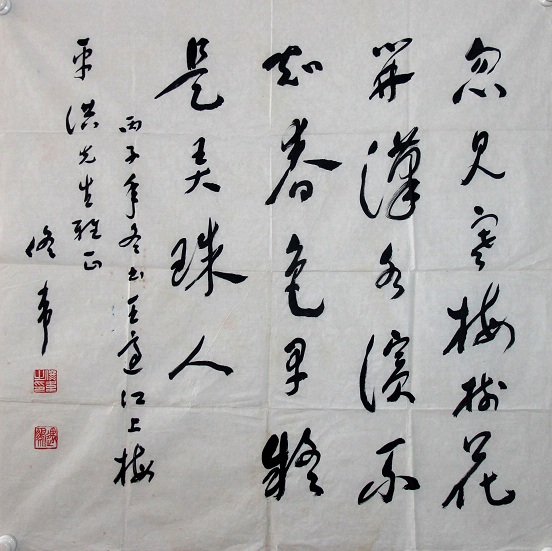 忽见寒梅树花
開漢水濱不
知春色早疑
是弄珠人
丙子年冬书王適江上梅
平洪先生雅正
佟韦